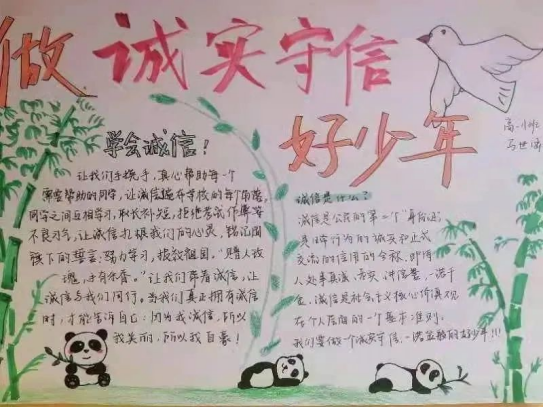 做 诚实守信
好少年
高一小班
学会诚信！
让我们手挽手，真心帮助每一个
需要帮助的同学，让诚信遍布学校的每个角落，
同学之间互相学习，取长补短，拒绝考试作弊等
不良习气，让诚信扎根我们的心灵，铭记国
旗下的誓言：努力学习，报效祖国，“赠人玫
瑰，手有余香。”让我们带着诚信，让
诚信与我们同行。当我们真正拥有诚信
时，才能告诉自己：因为我诚信，所以
我美丽，所以我自豪！
诚信是什么？
诚信是公民的第一个“身份证”
是日常行为的诚实和正式
交流的信用的合称，即待
人处事真诚、老实、讲信誉，一诺千
金，诚信是社会主义核心价值观
在个人层面的一个基本准则。
我们要做个诚实守信、一诺金的好少年!!!